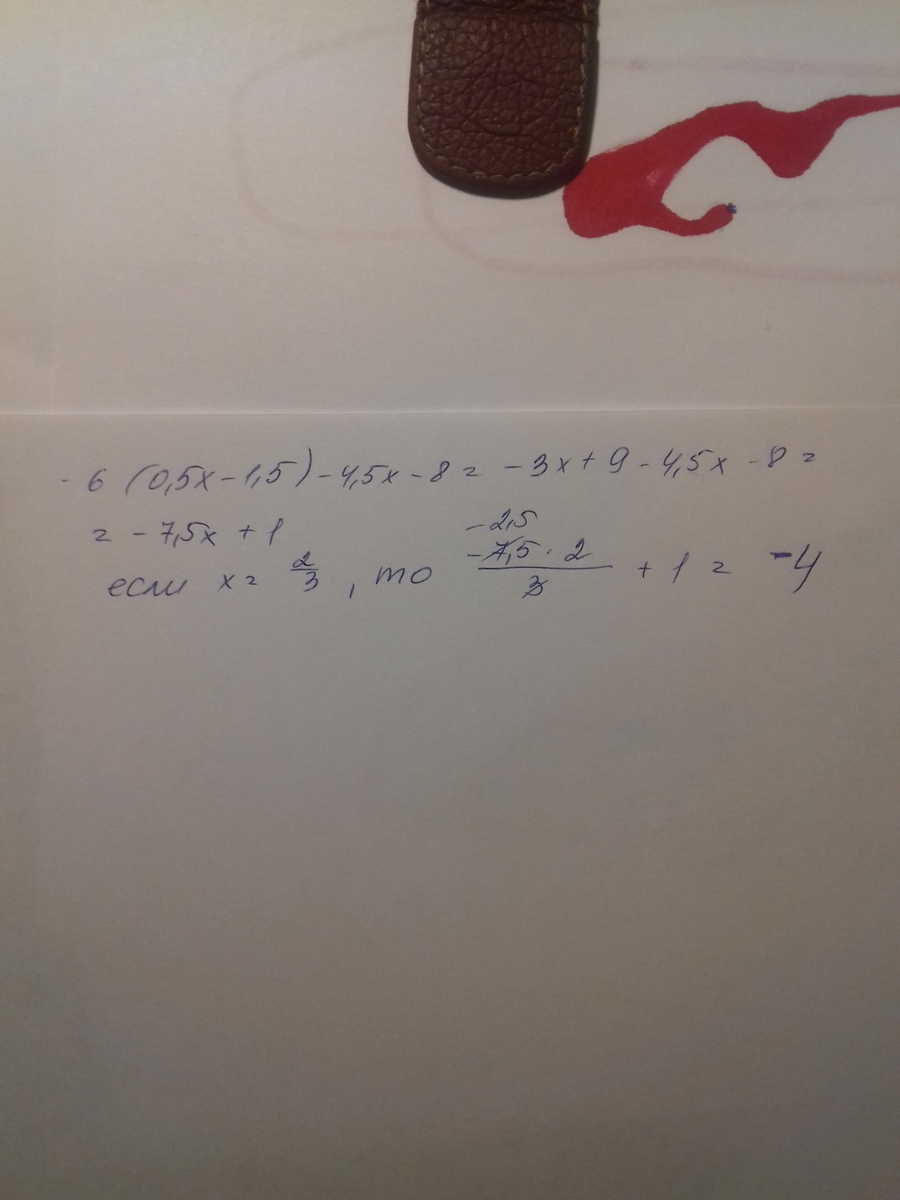 -6 (0,5x-1,5)-4,5x-8= -3x+9-4,5x-8=
= -7,5x+1
-2,5
если x= 2/3, то -7,5·2/3 +1= -4